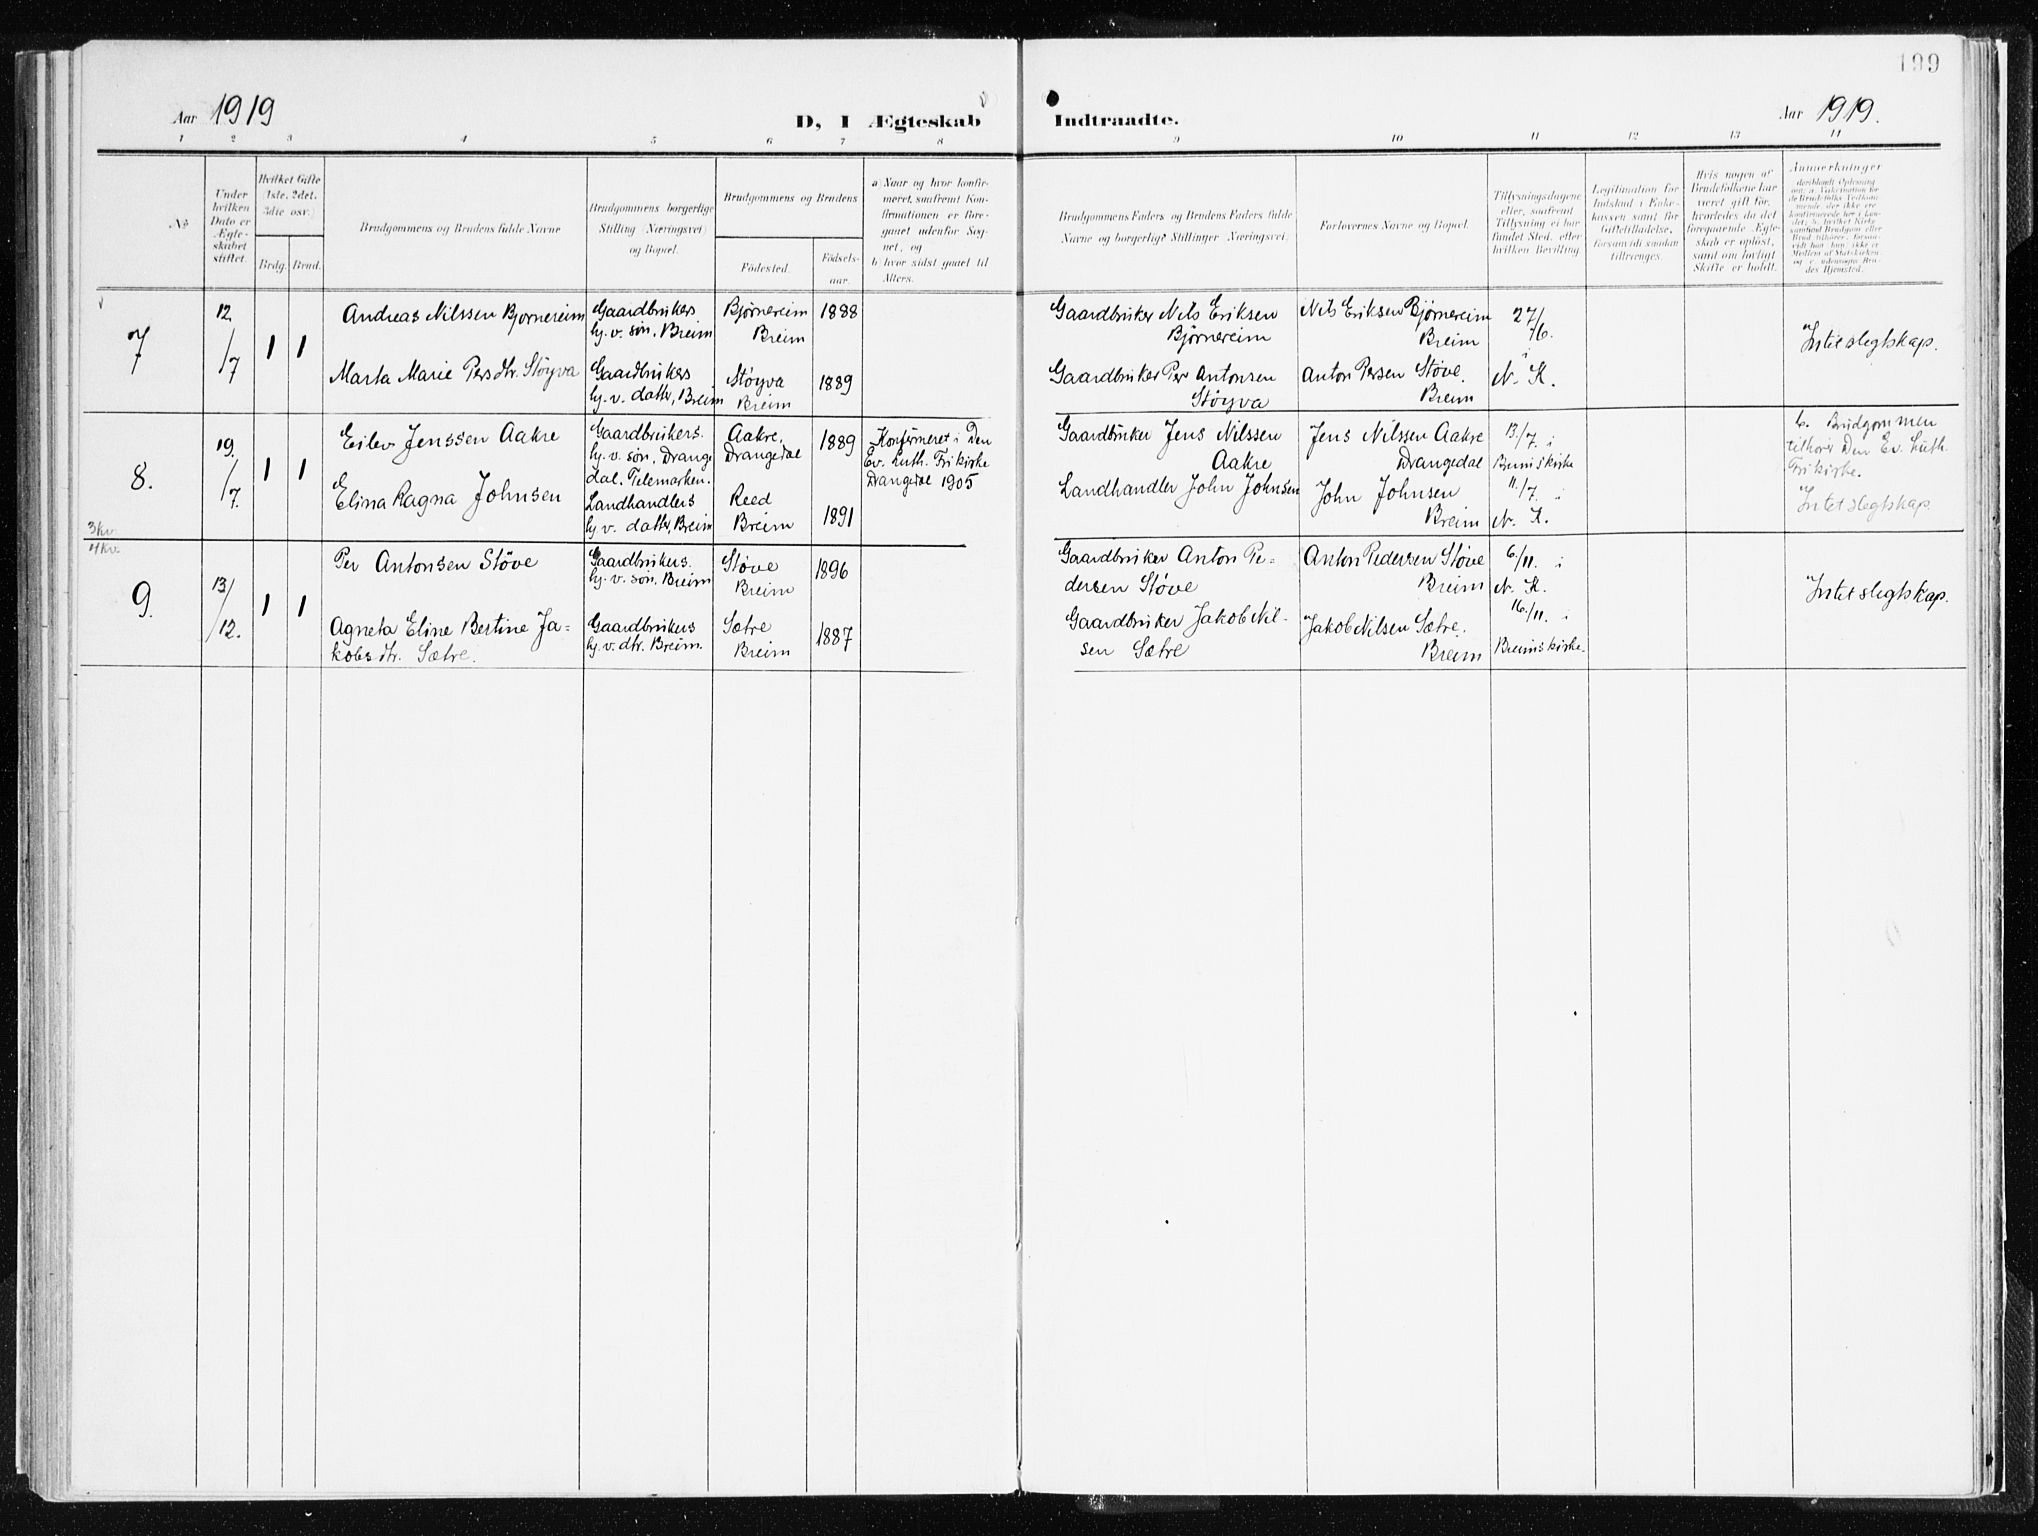 199
Aar 1919
D, I Ægteskab Indtraadte.
Aar 1919.
1 2 3 4 5 6 7 8 9 10 11 12 13 14
No
Under hvilken Dato er Ægteskabet stiftet.
Hvilket Gifte 1ste, 2det, 3die osv.)
Brdg. Brud.
Brudgommens og Brudens fulde Navne
Brudgommens borgerlige Stilling (Næringsvei) og Bopæl.
Brudgommens og Brudens
Födested.
Födsels-aar.
a) Naar og hvor konfirmeret, samfremt Konfirmationen er foregaaet udenfor Sognet, og
b) hvor sidst gaaet til Alters.
Brudgommens Faders og Brudens Faders fulde Navne og borgerlige Stillinger (Næringsvei)
Forlovernes Navne og Bopæl.
Tillysningsdagene eller, samfremt Tillysning ei har fundet Sted, efter hvilken Bevilling
Legitimation for Indskud i Enkekassen samt for Giftetilladelse, forsaavidt saadan tiltrænges.
Hvis nogen af Brudefolkene har været gift før, hvorledes da det foregaaende Ægteskab er opløst, samt om lovligt Skifte er holdt.
Anmerkninger
7
12/7
1 1
Andreas Nilssen Bjornereim
Gaardbrukers
hj. v. søn, Breim
Bjørnereim
Breim
1888
Gaardbruker Nils Eriksen
Bjørnereim
Nils Eriksen Bjørnereim
Breim
27/6.
i
N. K.
Intet slegtskap.
Marta Marie Persdtr. Støyva
Gaardbrukers
hj. v. datter, Breim
Støyva
Breim
1889
Gaardbruker Per Antonsen
Støyva
Anton Persen Støve.
Breim
8.
19./7.
1 1
Eilev Jenssen Aakre
Gaardbrukers.
hj. v. søn, Drange
dal. Telemarken.
Aakre,
Drangedal
1889
Konfirmeret i Den
Ev. Luth. Frikirke
Drangedal 1905
Gaardbruker Jens Nilssen
Aakre
Jens Nilssen Aakre
Drangedal
13/7. i
Breimskirke
b. Brudgommen
tilhører Den Ev. Luth.
Frikirke.
Elina Ragna Johnsen
Landhandlers
hj v. datter, Breim
Reed
Breim
1891
Landhandler John Johnsen
John Johnsen
Breim
11/7. i
N. K.
Intet slegtskap.
3kv.
4kv.
9.
13/12.
1 1
Per Antonsen Støve
Gaardbrukers.
hj. v. søn. Breim
Støve
Breim
1896
Gaardbruker Anton Pe-
dersen Støve
Anton Pedersen Støve
Breim
6./11. i
N. K.
Intet slegtskap.
Agneta Eline Bertine Ja-
kobsdtr. Sætre.
Gaardbrukers
hj. v. dtr. Breim.
Sætre
Breim
1887
Gaardbruker Jakob Nil-
sen Sætre
Jakob Nilsen Sætre.
Breim
16./11. i
Breimskirke.